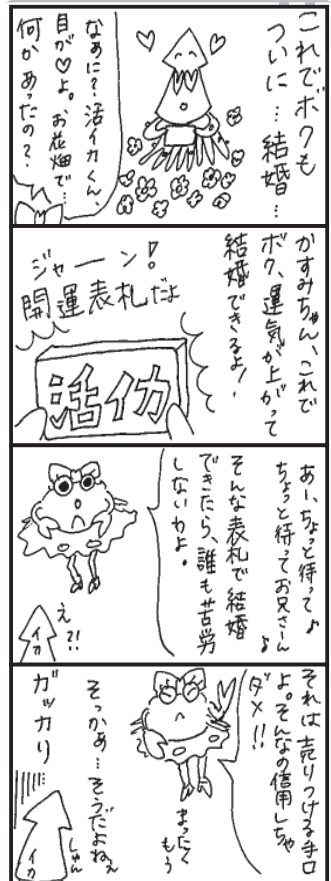 これでボクも
ついに…結婚…
なぁに?活イカくん、
目が♡よ。お花畑で…
何かあったの?
かすみちゃん、これで
ボク、運気が上がって
結婚できるよ!
ジャーン!
開運表札だよ
活イカ
あー、ちょっと待って♪
ちょっと待ってお兄さーん♪
そんな表札で結婚
できたら、誰も苦労
しないわよ。
え?!
イカ
それは売りつける手口
よ。そんなの信用しちゃ
ダメ!!
まったく
もう
そっかぁ…そうだよねぇ
しゅん
ガッカリ
イカ